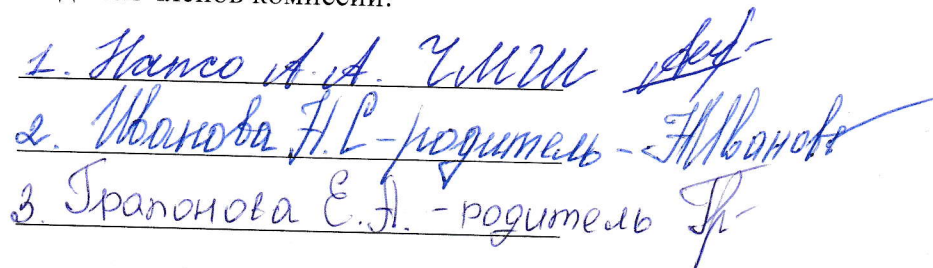 членов комиссии:
1. Напсо А. А. ЧМГШ
2. Иванова Н. С - родитель - НИванова
3. Грапонова Е. А. - родитель Гр-